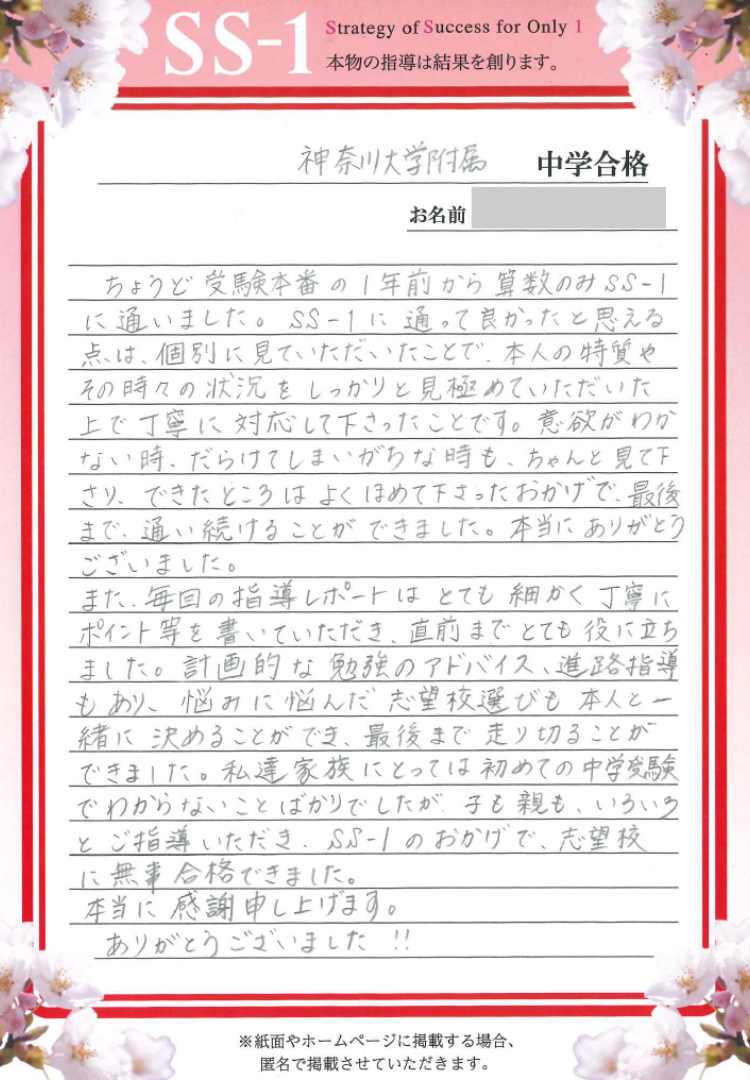 SS-1
Strategy of Success for Only 1
本物の指導は結果を創ります。
神奈川大学附属 中学合格
お名前
ちょうど受験本番の1年前から算数のみSS-1
に通いました。SS-1に通って良かったと思える
点は、個別に見ていただいたことで、本人の特質や
その時々の状況をしっかりと見極めていただいた
上で丁寧に対応して下さったことです。意欲がわか
ない時、だらけてしまいがちな時も、ちゃんと見て下
さり、できたところはよくほめて下さったおかげで、最後
まで、通い続けることができました。本当にありがとう
ございました。
また、毎回の指導レポートはとても細かく丁寧に
ポイント等を書いていただき、直前までとても役に立ち
ました。計画的な勉強のアドバイス、進路指導
もあり、悩みに悩んだ志望校選びも本人と一
緒に決めることができ、最後まで走り切ることが
できました。私達家族にとっては初めての中学受験
でわからないことばかりでしたが、子も親も、いろいろ
とご指導いただき、SS-1のおかげで、志望校
に無事合格できました。
本当に感謝申し上げます。
ありがとうございました!!
※紙面やホームページに掲載する場合、
匿名で掲載させていただきます。